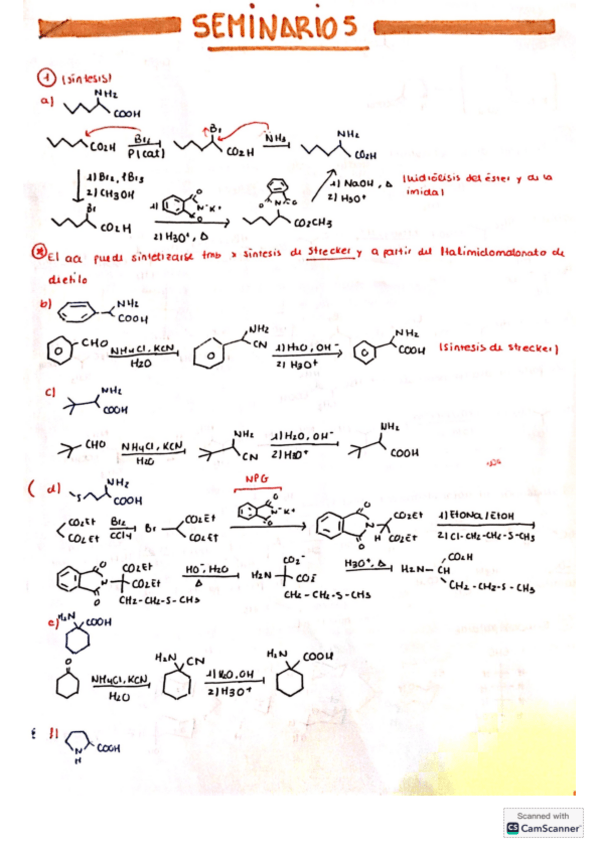 SEMINARIO 5
① (síntesis)
a) NH₂
COOH
CO₂H Br₂ P(cat) Br CO₂H NH₃ NH₂ CO₂H
1) Br₂, PBr₃
2) CH₃OH
1) NaOH, Δ
2) H₃O⁺
(hidrólisis del éster y de la imida)
Br CO₂H 1) O N⁻K⁺ O
2) H₃O⁺, Δ
O N O CO₂CH₃
El aa puede sintetizarse tmb x síntesis de Strecker y a partir del Halimidomalonato de
dietilo
b) NH₂
COOH
CHO NH₄Cl, KCN H₂O NH₂ CN 1) H₂O, OH⁻ 2) H₃O⁺ NH₂ COOH (síntesis de strecker)
c) NH₂
COOH
CHO NH₄Cl, KCN H₂O NH₂ CN 1) H₂O, OH⁻ 2) H₃O⁺ NH₂ COOH
( d) S NH₂ COOH
NPG
CO₂Et CO₂Et Br₂ CCl₄ Br CO₂Et CO₂Et O N⁻K⁺ O O N O CO₂Et H CO₂Et 1) EtONa/EtOH
2) Cl-CH₂-CH₂-S-CH₃
O N O CO₂Et CO₂Et CH₂-CH₂-S-CH₃ HO⁻, H₂O Δ H₂N CO₂⁻ CO₂⁻ CH₂-CH₂-S-CH₃ H₃O⁺, Δ H₂N-CH CO₂H CH₂-CH₂-S-CH₃
e) H₂N COOH
O NH₄Cl, KCN H₂O H₂N CN 1) H₂O, OH 2) H₃O⁺ H₂N COOH
f) N H COOH
Scanned with
CS CamScanner